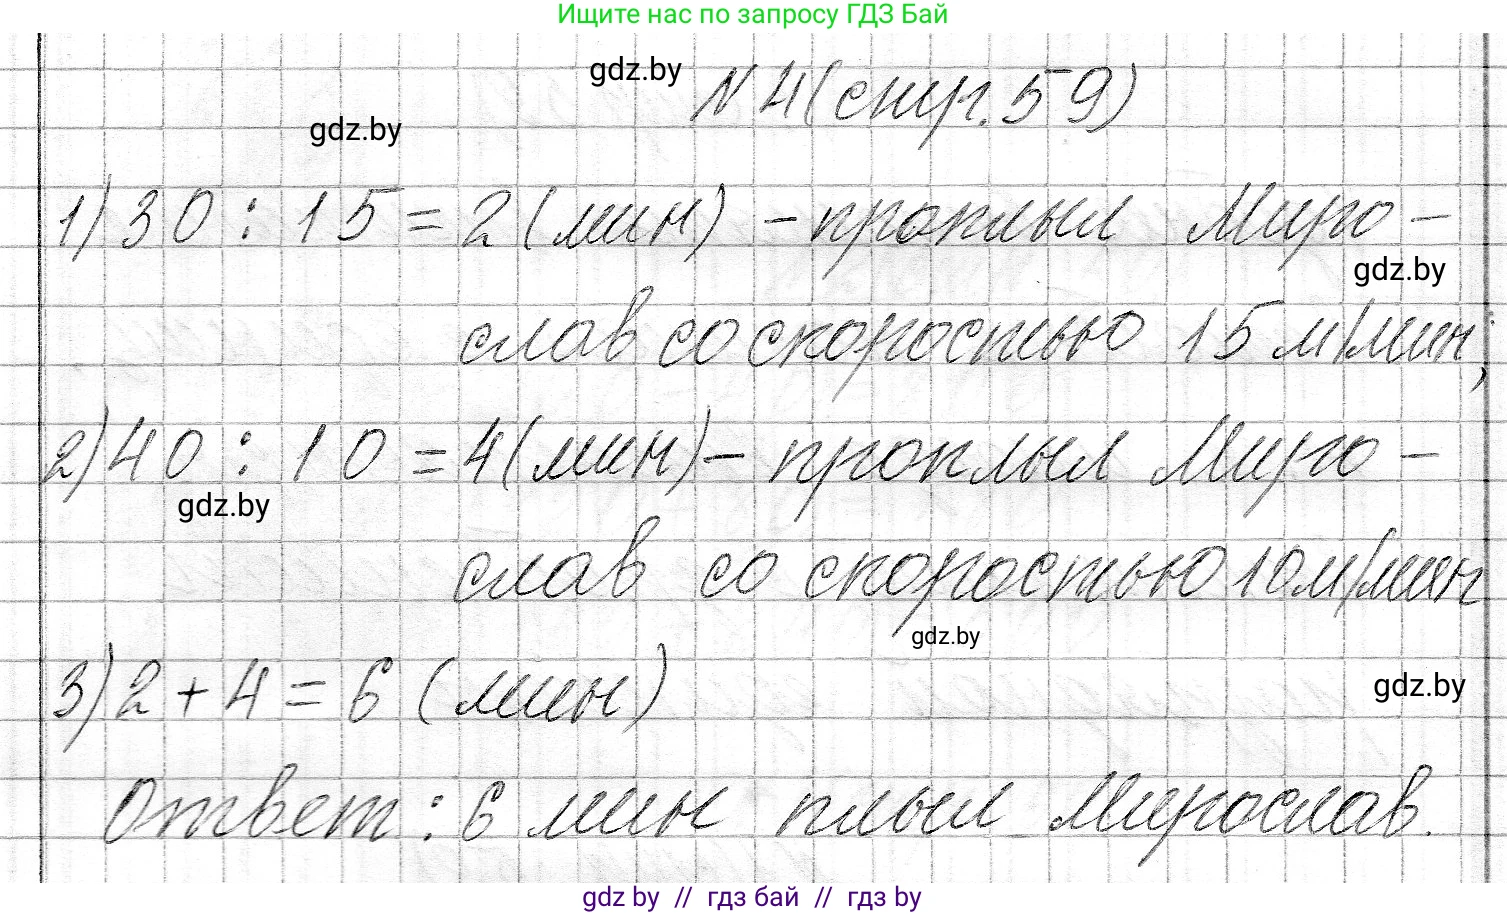 Ищите нас по запросу ГДЗ Бай
gdz.by
N 4 (стр. 59)
gdz.by
1) 30 : 15 = 2 (мин) - проплыл Миро-
gdz.by
слав со скоростью 15 м/мин;
2) 40 : 10 = 4 (мин) - проплыл Миро-
gdz.by
слав со скоростью 10 м/мин
gdz.by
3) 2 + 4 = 6 (мин)
gdz.by
Ответ : 6 мин плыл Мирослав.
gdz by // гдз бай // гдз by